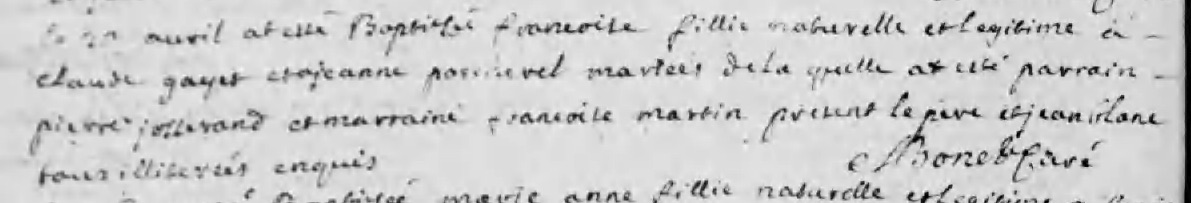 avril at esté Baptisée francoise fillie naturelle et legitime à
claude gayet et a jeanne mariees de la quelle at esté parrain
pierre josserand et marraine francoise martin present le pere et jean
tous illiterés enquis Bonet Curé
Baptisée marie anne fillie naturelle et legitime